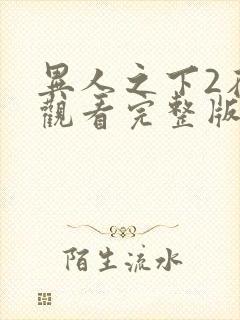 異人之下2
觀看完整版
陌生流水